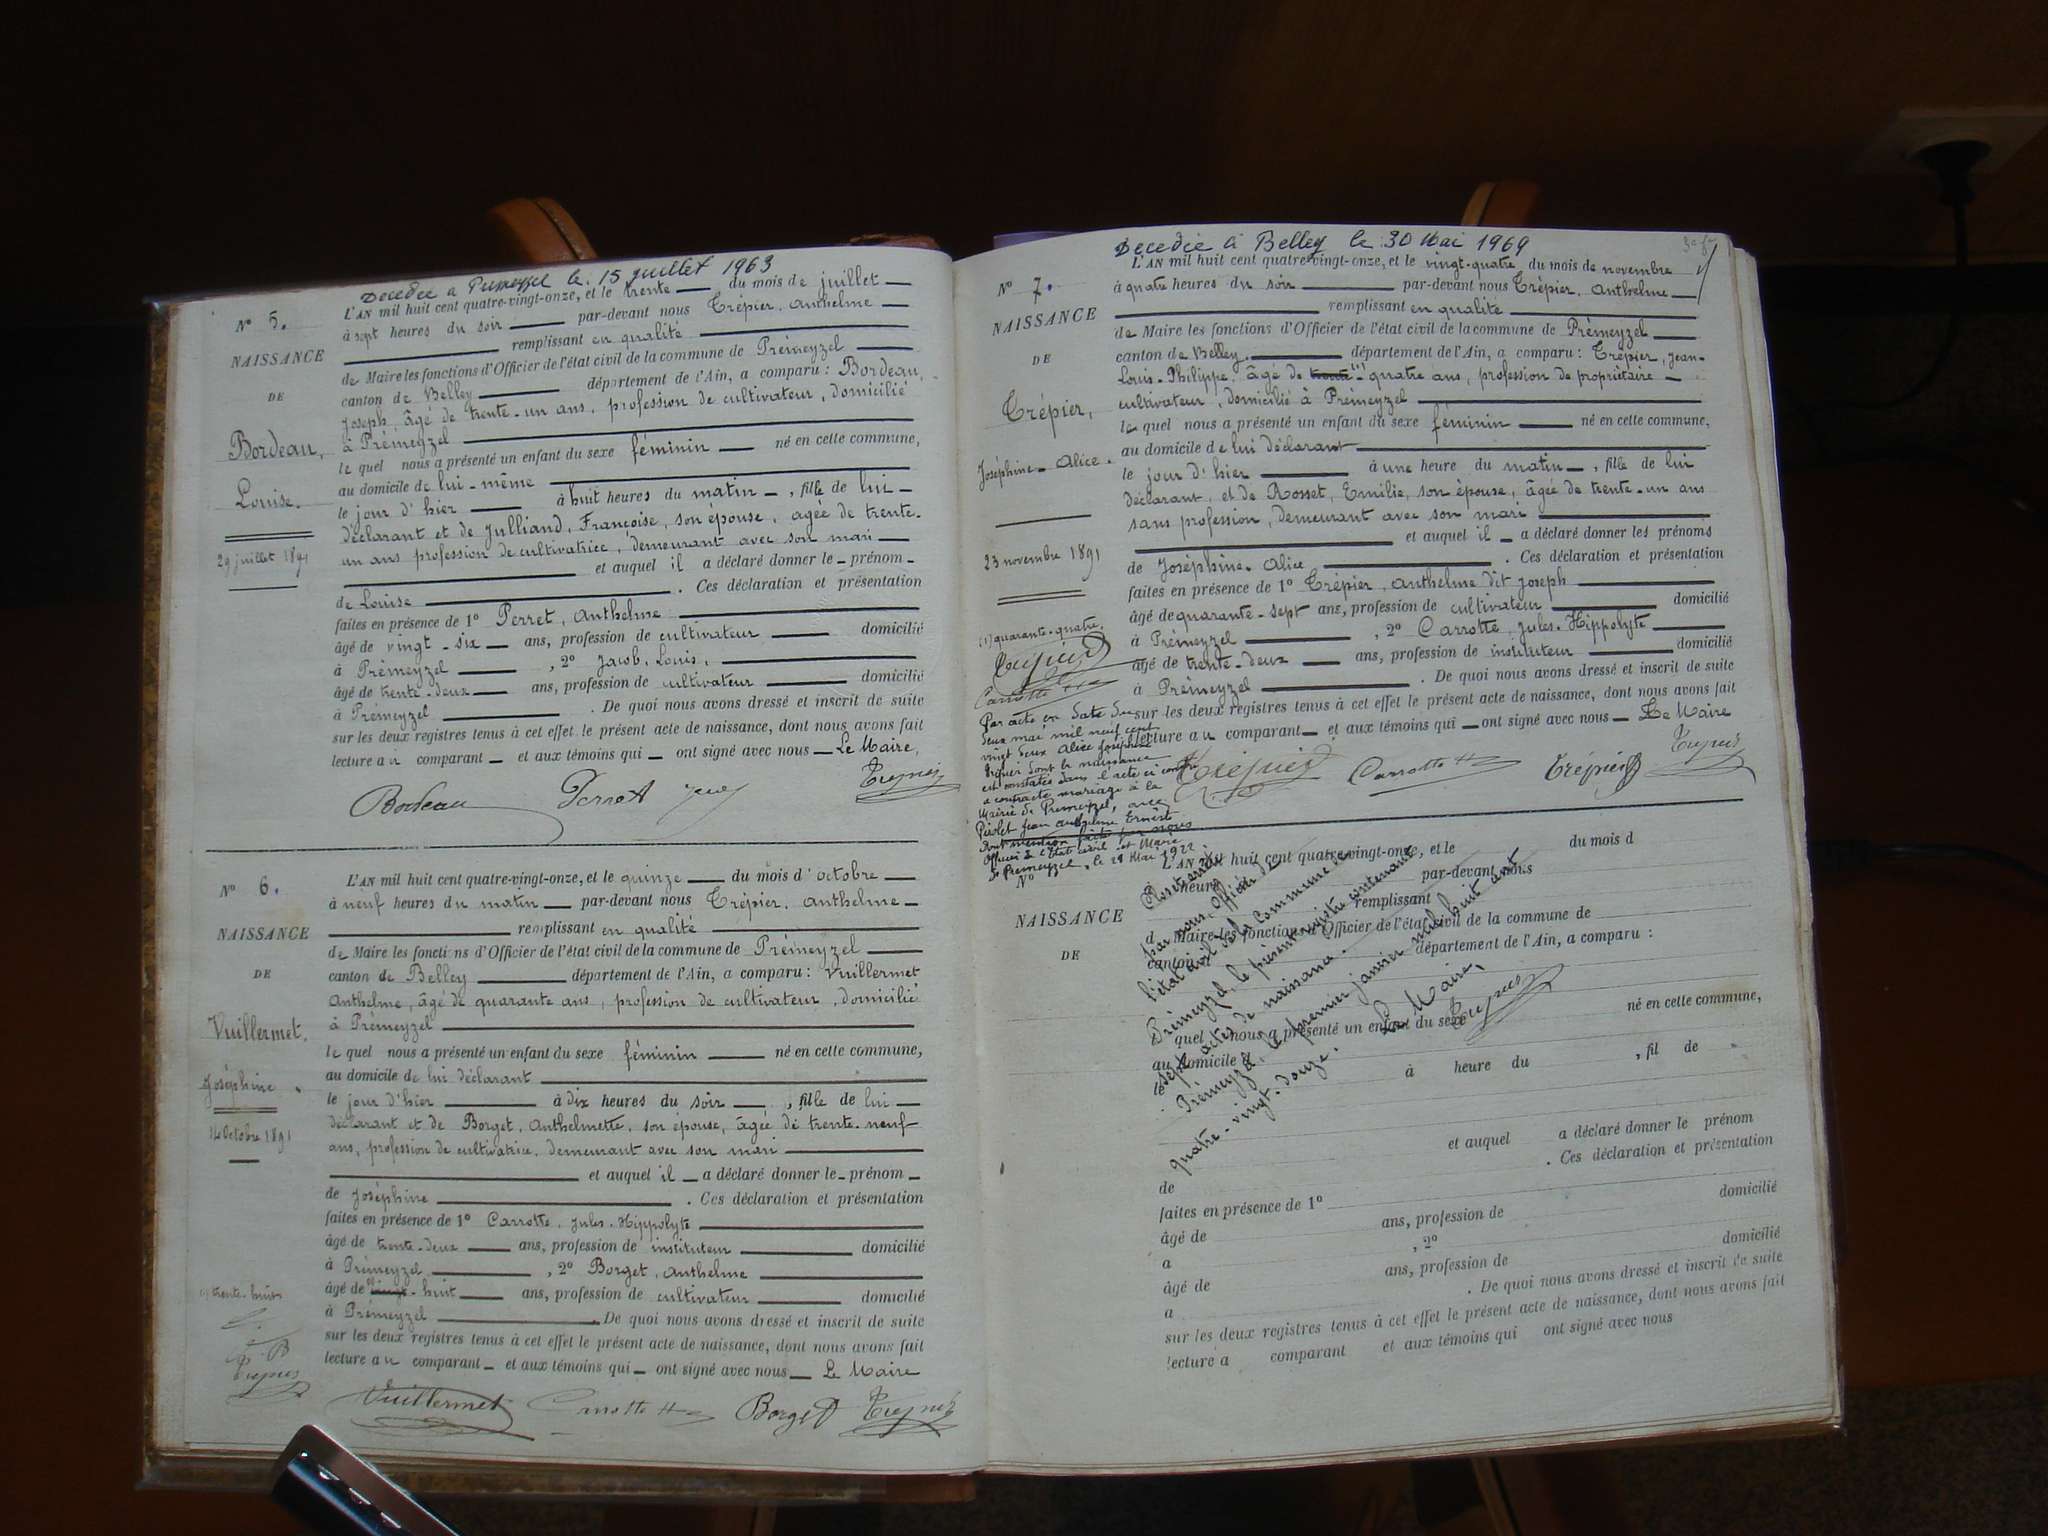 Décédée à Premeyzel le 15 juillet 1963
N° 5.
NAISSANCE
DE
Bordeau,
Louise.
29 juillet 1891
L'AN mil huit cent quatre-vingt-onze, et le trente du mois de juillet
à sept heures du soir par-devant nous Trépier, Anthelme
remplissant en qualité
de Maire les fonctions d'Officier de l'état civil de la commune de Prémeyzel
canton de Belley département de l'Ain, a comparu : Bordeau,
Joseph, âgé de trente-un ans, profession de cultivateur, domicilié
à Prémeyzel
le quel nous a présenté un enfant du sexe féminin né en cette commune,
au domicile de lui-même
le jour d'hier à huit heures du matin, fille de lui
déclarant et de Julliand, Françoise, son épouse, agée de trente-
un ans profession de cultivatrice, demeurant avec son mari
et auquel il a déclaré donner le prénom
de Louise . Ces déclaration et présentation
faites en présence de 1° Perret, Anthelme
âgé de vingt-six ans, profession de cultivateur domicilié
à Prémeyzel , 2° Jacob, Louis,
âgé de trente-deux ans, profession de cultivateur domicilié
à Prémeyzel . De quoi nous avons dressé et inscrit de suite
sur les deux registres tenus à cet effet le présent acte de naissance, dont nous avons fait
lecture au comparant et aux témoins qui ont signé avec nous Le Maire,
Bordeau Perret
N° 6.
NAISSANCE
DE
Vuillermet,
Joséphine
14 Octobre 1891
L'AN mil huit cent quatre-vingt-onze, et le quinze du mois d'octobre
à neuf heures du matin par-devant nous Trépier, Anthelme
remplissant en qualité
de Maire les fonctions d'Officier de l'état civil de la commune de Prémeyzel
canton de Belley département de l'Ain, a comparu : Vuillermet
Anthelme, âgé de quarante ans, profession de cultivateur, domicilié
à Prémeyzel
le quel nous a présenté un enfant du sexe féminin né en cette commune,
au domicile de lui déclarant
le jour d'hier à dix heures du soir , fille de lui
déclarant et de Borget, Anthelmette, son épouse, âgée de trente-neuf
ans, profession de cultivatrice, demeurant avec son mari
et auquel il a déclaré donner le prénom
de Joséphine . Ces déclaration et présentation
faites en présence de 1° Carrotte, Jules-Hippolyte
âgé de trente-deux ans, profession de instituteur domicilié
à Prémeyzel , 2° Borget, Anthelme
âgé de (1) vingt-huit ans, profession de cultivateur domicilié
(1) trente-huit
à Prémeyzel . De quoi nous avons dressé et inscrit de suite
sur les deux registres tenus à cet effet le présent acte de naissance, dont nous avons fait
lecture au comparant et aux témoins qui ont signé avec nous Le Maire
Vuillermet Carrotte Borget Trépier
Décédée à Belley le 30 Mai 1969
N° 7.
NAISSANCE
DE
Trépier,
Joséphine-Alice.
23 novembre 1891
L'AN mil huit cent quatre-vingt-onze, et le vingt-quatre du mois de novembre
à quatre heures du soir par-devant nous Trépier, Anthelme
remplissant en qualité
de Maire les fonctions d'Officier de l'état civil de la commune de Prémeyzel
canton de Belley. département de l'Ain, a comparu : Trépier, Jean-
Louis-Philippe, âgé de trente (1) quatre ans, profession de propriétaire
cultivateur, domicilié à Prémeyzel
le quel nous a présenté un enfant du sexe féminin né en cette commune,
au domicile de lui déclarant
le jour d'hier à une heure du matin , fille de lui
déclarant, et de Rosset, Emilie, son épouse, âgée de trente-un ans
sans profession, demeurant avec son mari
et auquel il a déclaré donner les prénoms
de Joséphine-Alice . Ces déclaration et présentation
faites en présence de 1° Trépier, Anthelme dit Joseph
âgé de quarante-sept ans, profession de cultivateur domicilié
à Prémeyzel , 2° Carrotte, Jules-Hippolyte
âgé de trente-deux ans, profession de instituteur domicilié
à Prémeyzel . De quoi nous avons dressé et inscrit de suite
sur les deux registres tenus à cet effet le présent acte de naissance, dont nous avons fait
lecture au comparant et aux témoins qui ont signé avec nous Le Maire
Trépier Carrotte Trépier Trépier
(1) quarante-quatre.
Trépier
Carrotte
Par acte en date du
deux mai mil neuf cent
vingt deux Alice Joséphine
Trépier dont la naissance
est constatée dans l'acte ci contre
a contracté mariage à la
Mairie de Premeyzel, avec
Jean Anthelme Ernest
Dont mention faite par nous
Officier de l'Etat civil et Maire
de Premeyzel, le 28 Mai 1922
N°
NAISSANCE
DE
L'AN mil huit cent quatre-vingt-onze, et le du mois d
à heure par-devant nous
remplissant
d Maire les fonctions d'Officier de l'état civil de la commune de
canton département de l'Ain, a comparu :
quel nous a présenté un enfant du sexe né en cette commune,
au domicile d
le à heure du , fil de
et auquel a déclaré donner le prénom
de . Ces déclaration et présentation
faites en présence de 1°
âgé de ans, profession de domicilié
a , 2°
âgé de ans, profession de domicilié
a . De quoi nous avons dressé et inscrit de suite
sur les deux registres tenus à cet effet le présent acte de naissance, dont nous avons fait
lecture a comparant et aux témoins qui ont signé avec nous
Clos et arrêté
par nous, Officier de
l'état civil de la Commune de
Prémeyzel le présent registre contenant
sept actes de naissance.
Prémeyzel, le premier janvier mil huit cent
quatre-vingt-douze. Le Maire,
Trépier